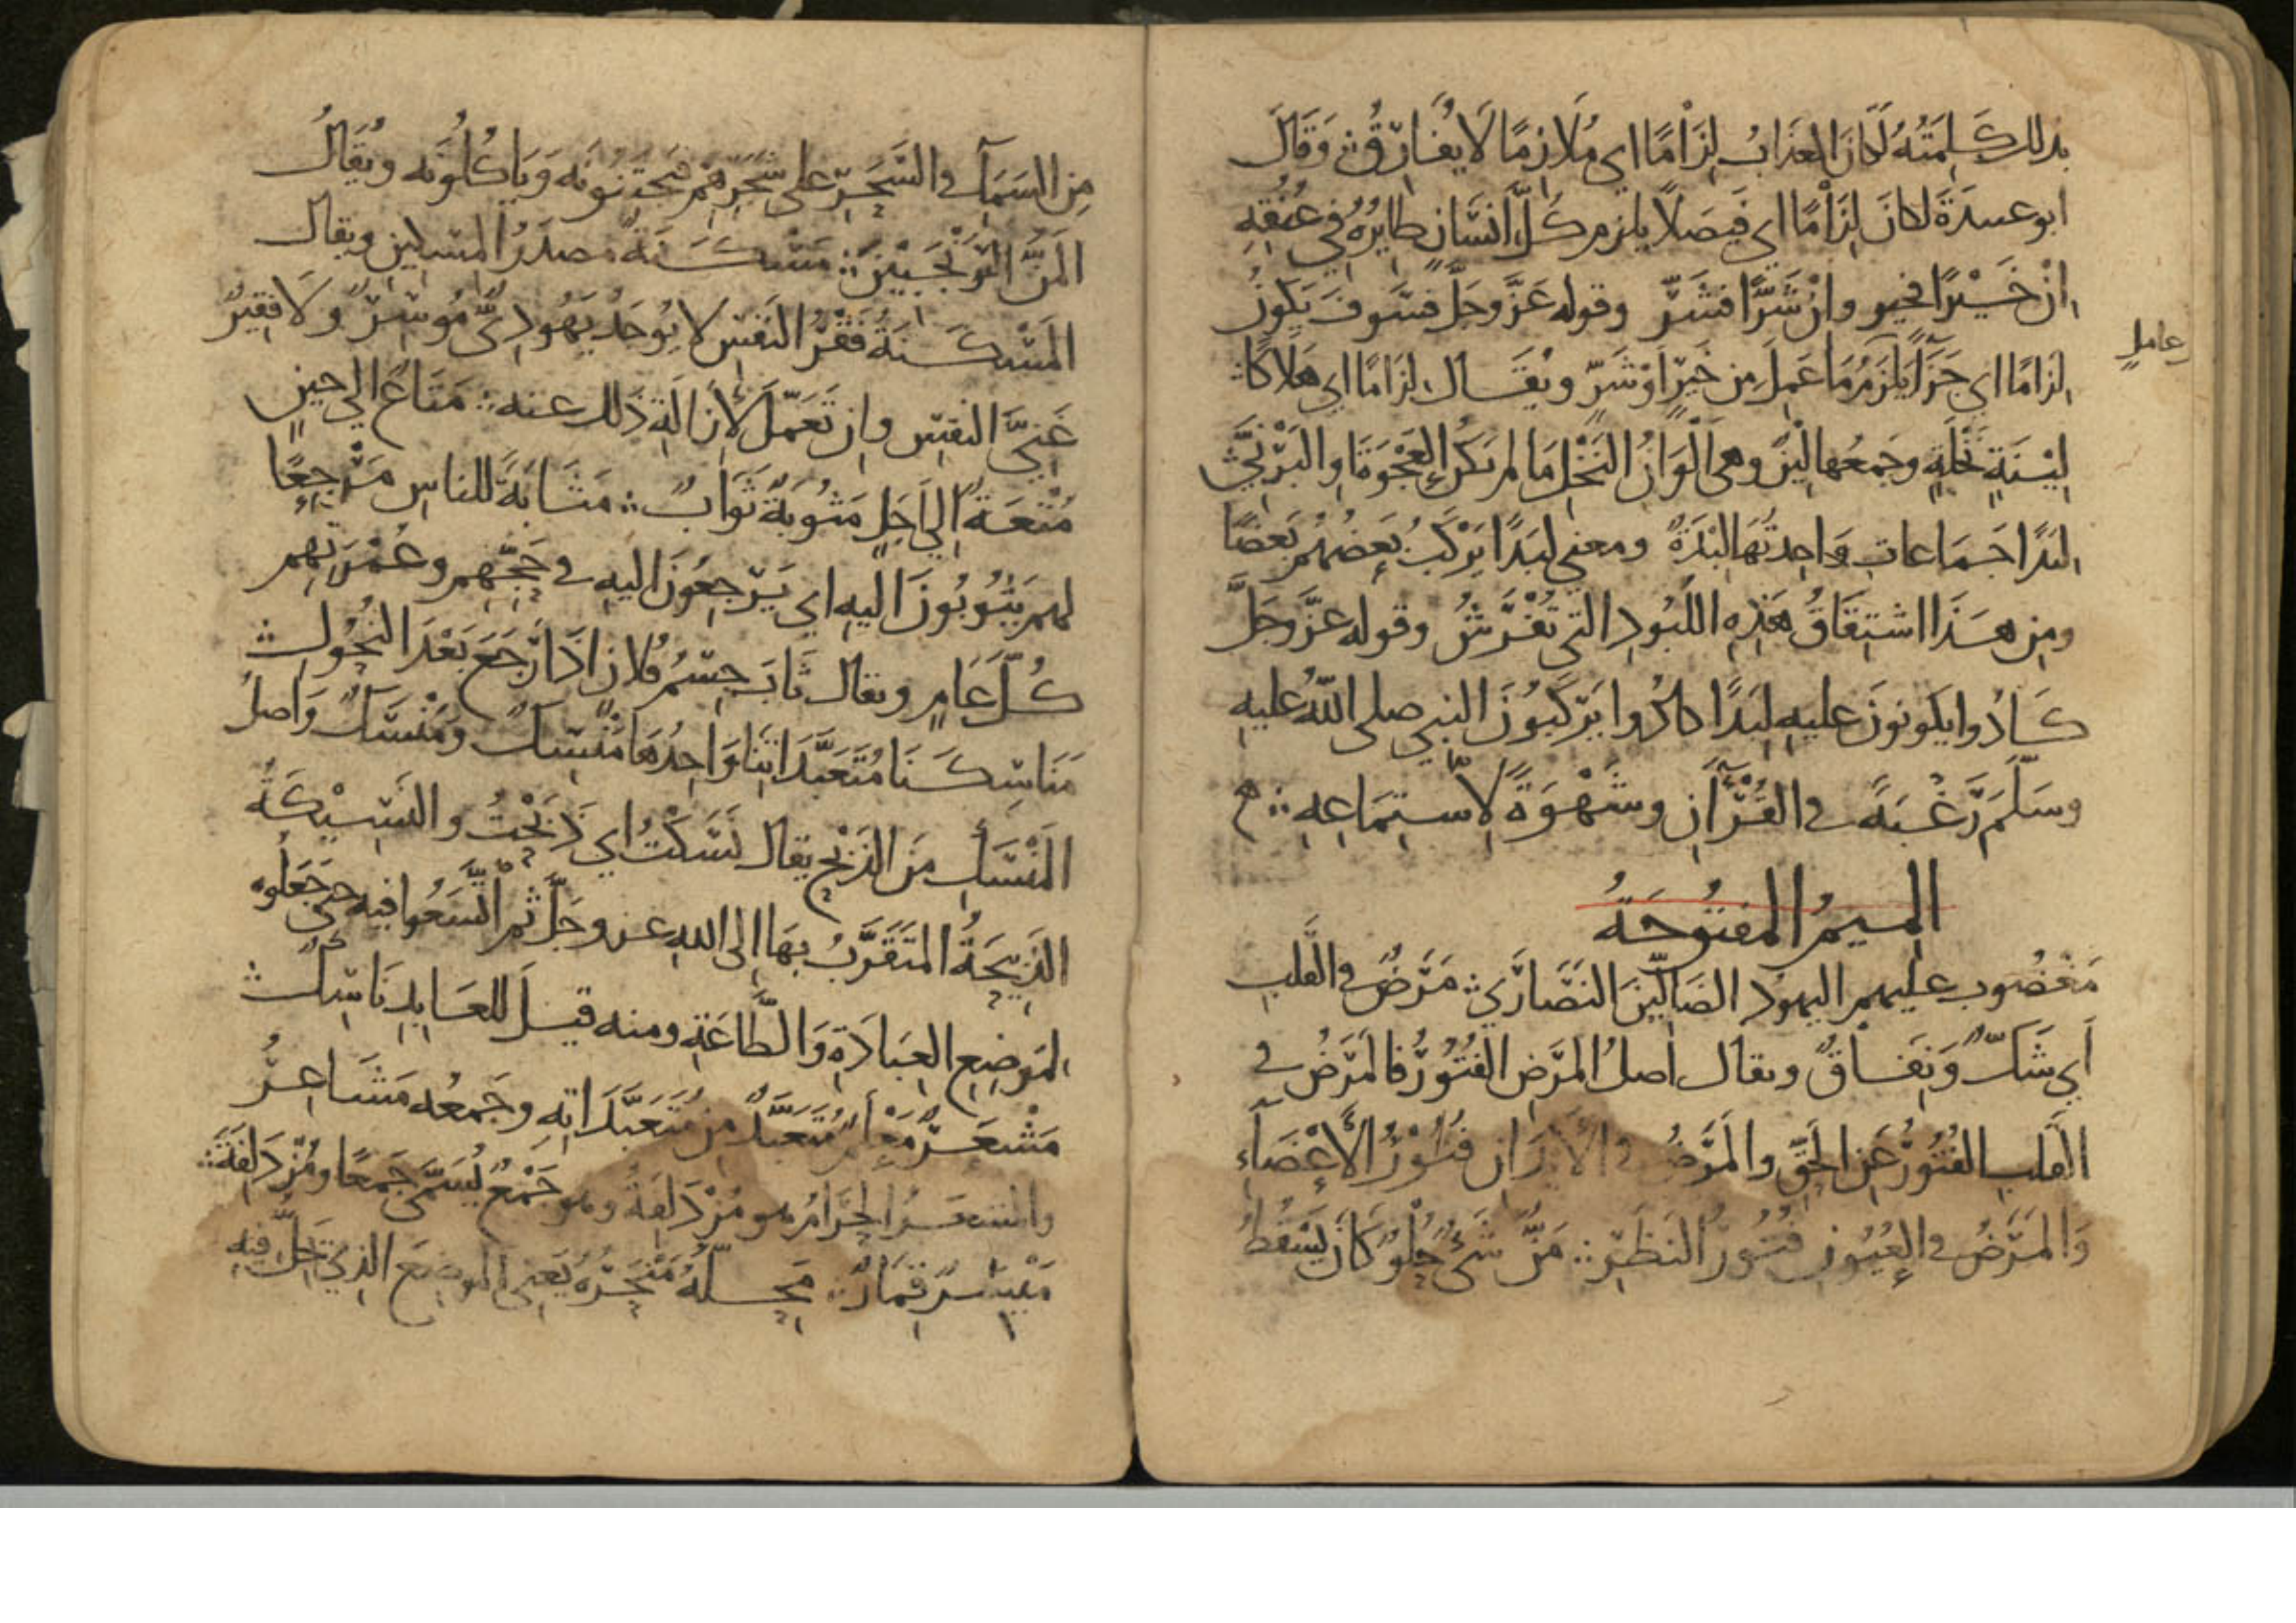 بذلك كَلِمَتُهُ لَكَانَ العَذَابُ لِزَامًا اي مُلَازِمًا لَا يُفَارِقُ ؞ وَقَالَ
ابو عبيدةَ لكانَ لِزَامًا اي فَيصَلًا يلزم كُلَّ انسَانٍ طَايِرُهُ في عُنُقِهِ
اِنْ خَيْرًا فخير وان شَرًّا فشَرٌّ وقوله عَزَّ وجَلَّ فسَوفَ يَكونُ
لِزامًا اي جَزَآءً يَلزَمُ مَا عَمِلَ مِن خَيْرٍ اَوْ شَرٍّ ويُقَال لِزَامًا اي هَلَاكًا ؞
عامل
لِيْنَةٍ نَخْلَةٍ وجَمعُها لِيْنٌ وهي اَلْوَانُ النَخْلِ مَا لم تكن العَجْوَةَ او البَرْنِيَّ ؞
لِبَدًا جَمَاعاتٍ وَاحِدتُهَا لِبْدَةٌ ومعنى لِبَدًا يَرْكَبُ بَعضُهُم بَعضًا
ومِن هَذَا اشتِقَاقُ هَذِهِ اللُّبُودِ التي تُفْرَشُ وقوله عَزَّ وجَلَّ
كَادُوا يكونونَ عليهِ لِبَدًا كادُوا يَرْكَبُونَ النبي صلى اللّه عليهِ
وسَلَّمَ رَغْبَةً في القُرْآنِ وشَهْوَةً لِاسْتِمَاعِهِ ؞
المِيمُ المفتُوحَةُ
مَغْضُوبِ عليهم اليهودُ الضَالِّينَ النَصَارَى ؞ مَرَضٌ في القَلبِ
أي شَكٌّ وَنِفَاقٌ ويقال اصلُ المَرَضِ الفُتُوْرُ فالمَرَضُ في
القَلبِ الفُتُورُ عَنِ الحَقِّ والمَرَضُ في الاَبْدَانِ فُتُوْرُ الأَعْضَآءِ
وَالمَرَضُ في العُيُونِ فُتُورُ النَظَرِ ؞ مَنّ شَيْءٌ حُلْوٌ كَانَ يَسْقُطُ
مِنَ السَمَآءِ في السَحَرِ على شَجَرِهِم فيَجْتَنُونَه وَيَأكُلُونَه ويُقَالُ
المَنُّ التَرَنْجَبِيْنُ ؞ مَسْكَنَةٌ مَصدَرُ المِسكِينِ ويقال
المَسْكَنَةُ فَقْرُ النَفْسِ لا يُوجَدُ يَهُودِيٌّ مُوسِرٌ وَلَا فقِيرٌ
غَنِيَّ النفسِ وان تَعَمَّلَ لِإزَالَةِ ذَلكَ عنه ؞ مَتَاعٌ الى حينٍ
مُتْعَةٌ اِلَى اَجَلٍ مَثُوبَةٌ ثَوَابٌ ؞ مَثَابَةً للناسِ مَرْجِعًا
لهم يَثُوبُونَ اليهِ اي يَرْجِعُونَ اليهِ في حَجِّهِم وعُمْرَتِهِم
كُلَّ عَامٍ ويقال ثَابَ جِسْمُ فُلانٍ اذَا رَجَعَ بَعْدَ النُحُولِ ؞
مَنَاسِكَنَا مُتَعَبَّدَاتِنَا وَاحِدُهَا مَنْسِكٌ ومَنْسَكٌ وَاصلُ
المَنْسَكِ مِنَ الذَبْحِ يقال نَسَكْتُ اي ذَبَحْتُ والنَسِيْكَةُ
الذَبِيْحَةُ المتَقَرَّبُ بِهَا اِلى اللهِ عز وجَلَّ ثم اتَّسَعُوا فيه حتى جَعَلُوه
لمَوضِعِ العِبَادَةِ وَالطَّاعَةِ ومنه قيلَ للعَابِدِ نَاسِكٌ ؞
مَشْعَرٌ مَعْلَمٌ مُتَعَبَّدٌ مِن مُتَعَبَّدَاتِهِ وجَمعُه مَشَاعِرُ
والمشعَرُ الحَرَامُ هو مُزْدَلِفَةُ وهو جَمْعٌ يُسَمَّى جَمعًا ومُزْدَلِفَةَ ؞
مَيْسِرٌ قِمَارٌ ؞ مَحِلَّهُ مَنْحَرَهُ يَعنى الموضِعَ الذي يَحِلُّ فِيهِ